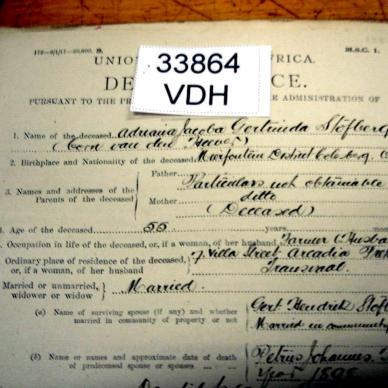 172—9/1/17—20,000. S. M.S.C. 1.
UNIO FRICA.
33864
VDH
DE CE.
PURSUANT TO THE PR E ADMINISTRATION OF
1. Name of the deceased Adriana Jacoba Gertruida Stofberg
(born van den Heever)
2. Birthplace and Nationality of the deceased District Colesberg
3. Names and addresses of the Parents of the deceased
Father Particulars not obtainable
Mother ditto
(Deceased)
Age of the deceased 55 years,
Occupation in life of the deceased, or, if a woman, of her husband Farmer (Husba
Ordinary place of residence of the deceased, or, if a woman, of her husband Villa Street Arcadia
Transvaal.
Married or unmarried, widower or widow Married.
(a) Name of surviving spouse (if any) and whether married in community of property or not
Gert Hendrik Stof
Married in community
(b) Name or names and approximate date of death of predeceased spouse or spouses
Petrus Johannes
1898